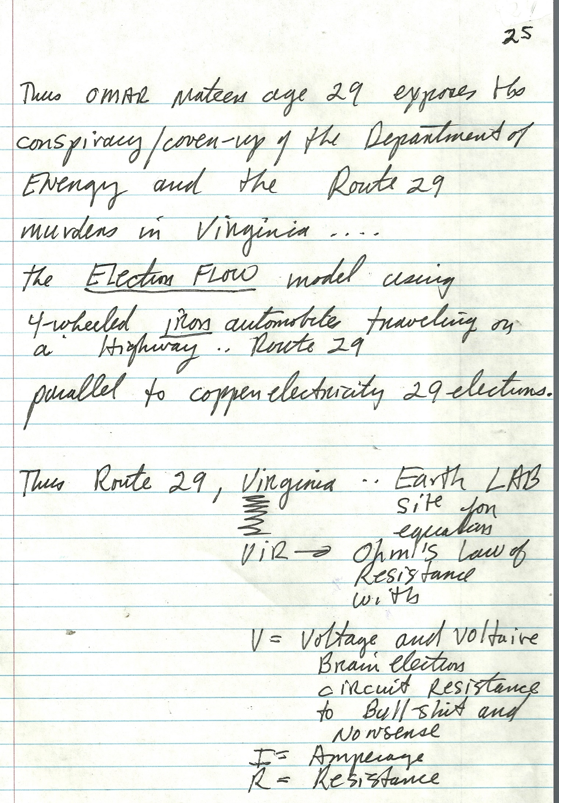 25
Thus OMAR Mateen age 29 exposes the
conspiracy/cover-up of the Department of
Energy and the Route 29
murders in Virginia ....
the Electron FLOW model using
4-wheeled iron automobiles traveling on
a Highway .. Route 29
parallel to copper electricity 29 electrons.
Thus Route 29, Virginia .. Earth LAB
site for
equation
ViR → Ohm's Law of
Resistance
with
V = Voltage and Voltaire
Brain electron
circuit Resistance
to Bull-shit and
Nonsense
I = Amperage
R = Resistance